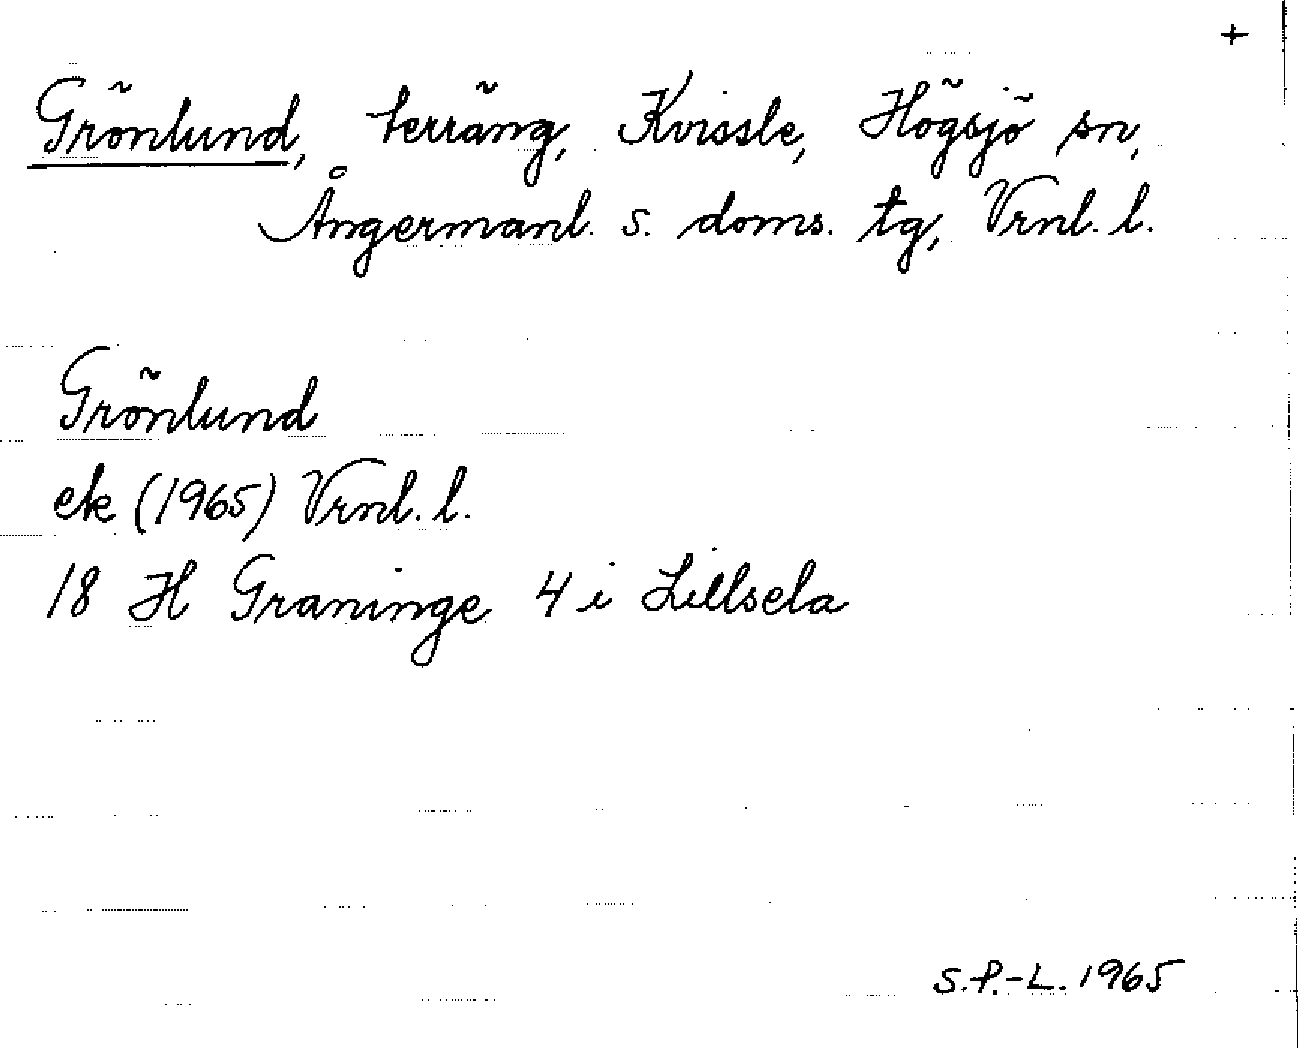 +
Grönlund, terräng, Kvissle, Högsjö sn,
Ångermanl. s. doms. tg, Vrnl. l.
Grönlund
ek (1965) Vrnl. l.
18 H Graninge 4 i Lillsela
S.P.-L. 1965